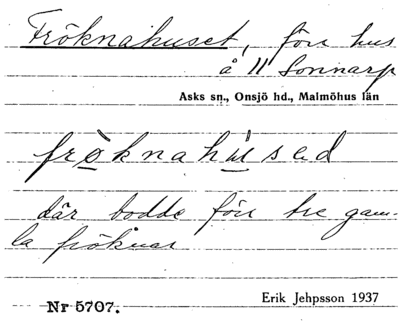 Fröknahuset, förr hus
å 11 Sonnarp
Asks sn., Onsjö hd., Malmöhus län
frøknahu̲sed
där bodde förr tre gam-
la fröknar
Nr 5707. Erik Jehpsson 1937